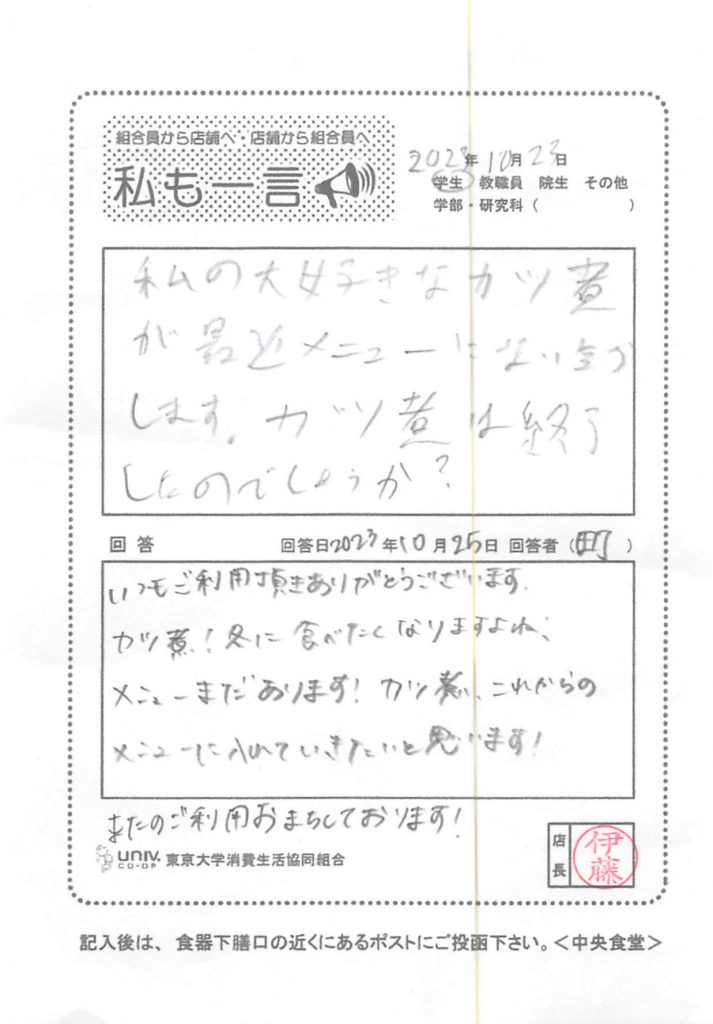 組合員から店舗へ・店舗から組合員へ
私も一言
2023年10月23日
学生 教職員 院生 その他
学部・研究科（ ）
私の大好きなカツ煮
が最近メニューにない気が
します。カツ煮は終了
したのでしょうか？
回答 回答日2023年10月25日 回答者（町）
いつもご利用頂きありがとうございます。
カツ煮！冬に食べたくなりますよね、
メニューまだあります！カツ煮、これからの
メニューに入れていきたいと思います！
またのご利用おまちしております！
UNIV. CO-OP 東京大学消費生活協同組合
店長 伊藤
記入後は、食器下膳口の近くにあるポストにご投函下さい。＜中央食堂＞